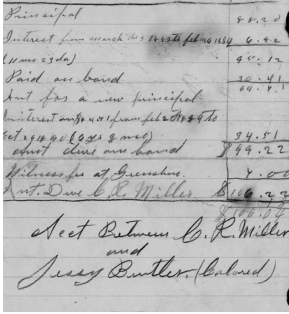 Principal 88.20
Interest from march 1883 to feb 20 1884 6.92
(11 mos 23 da) 95.12
Paid on bond 30.41
Amt for a new principal 64.71
interest on $64.71 from feb 20 1884 to
Oct 1890 (6 yrs 8 mos) 34.51
Amt due on bond $99.22
Witness fee at Greensboro. 7.00
Amt. Due C. R. Miller $106.22
Acct Between C. R. Miller
and
Jessy Buttler. (Colored)